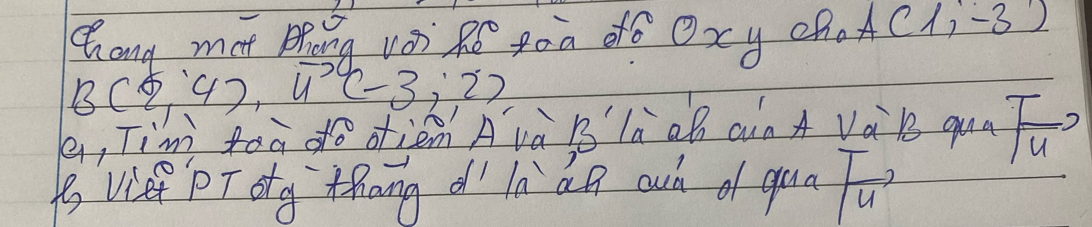 Trong mặt phẳng với hệ toà độ Oxy cho A(1; -3)
B(2; 4), u→(-3; 2)
a, Tìm toà độ điểm A' và B' là ảh của A và B qua Tu→
b, Viết PT đtg thẳng d' là ảh của d qua Tu→